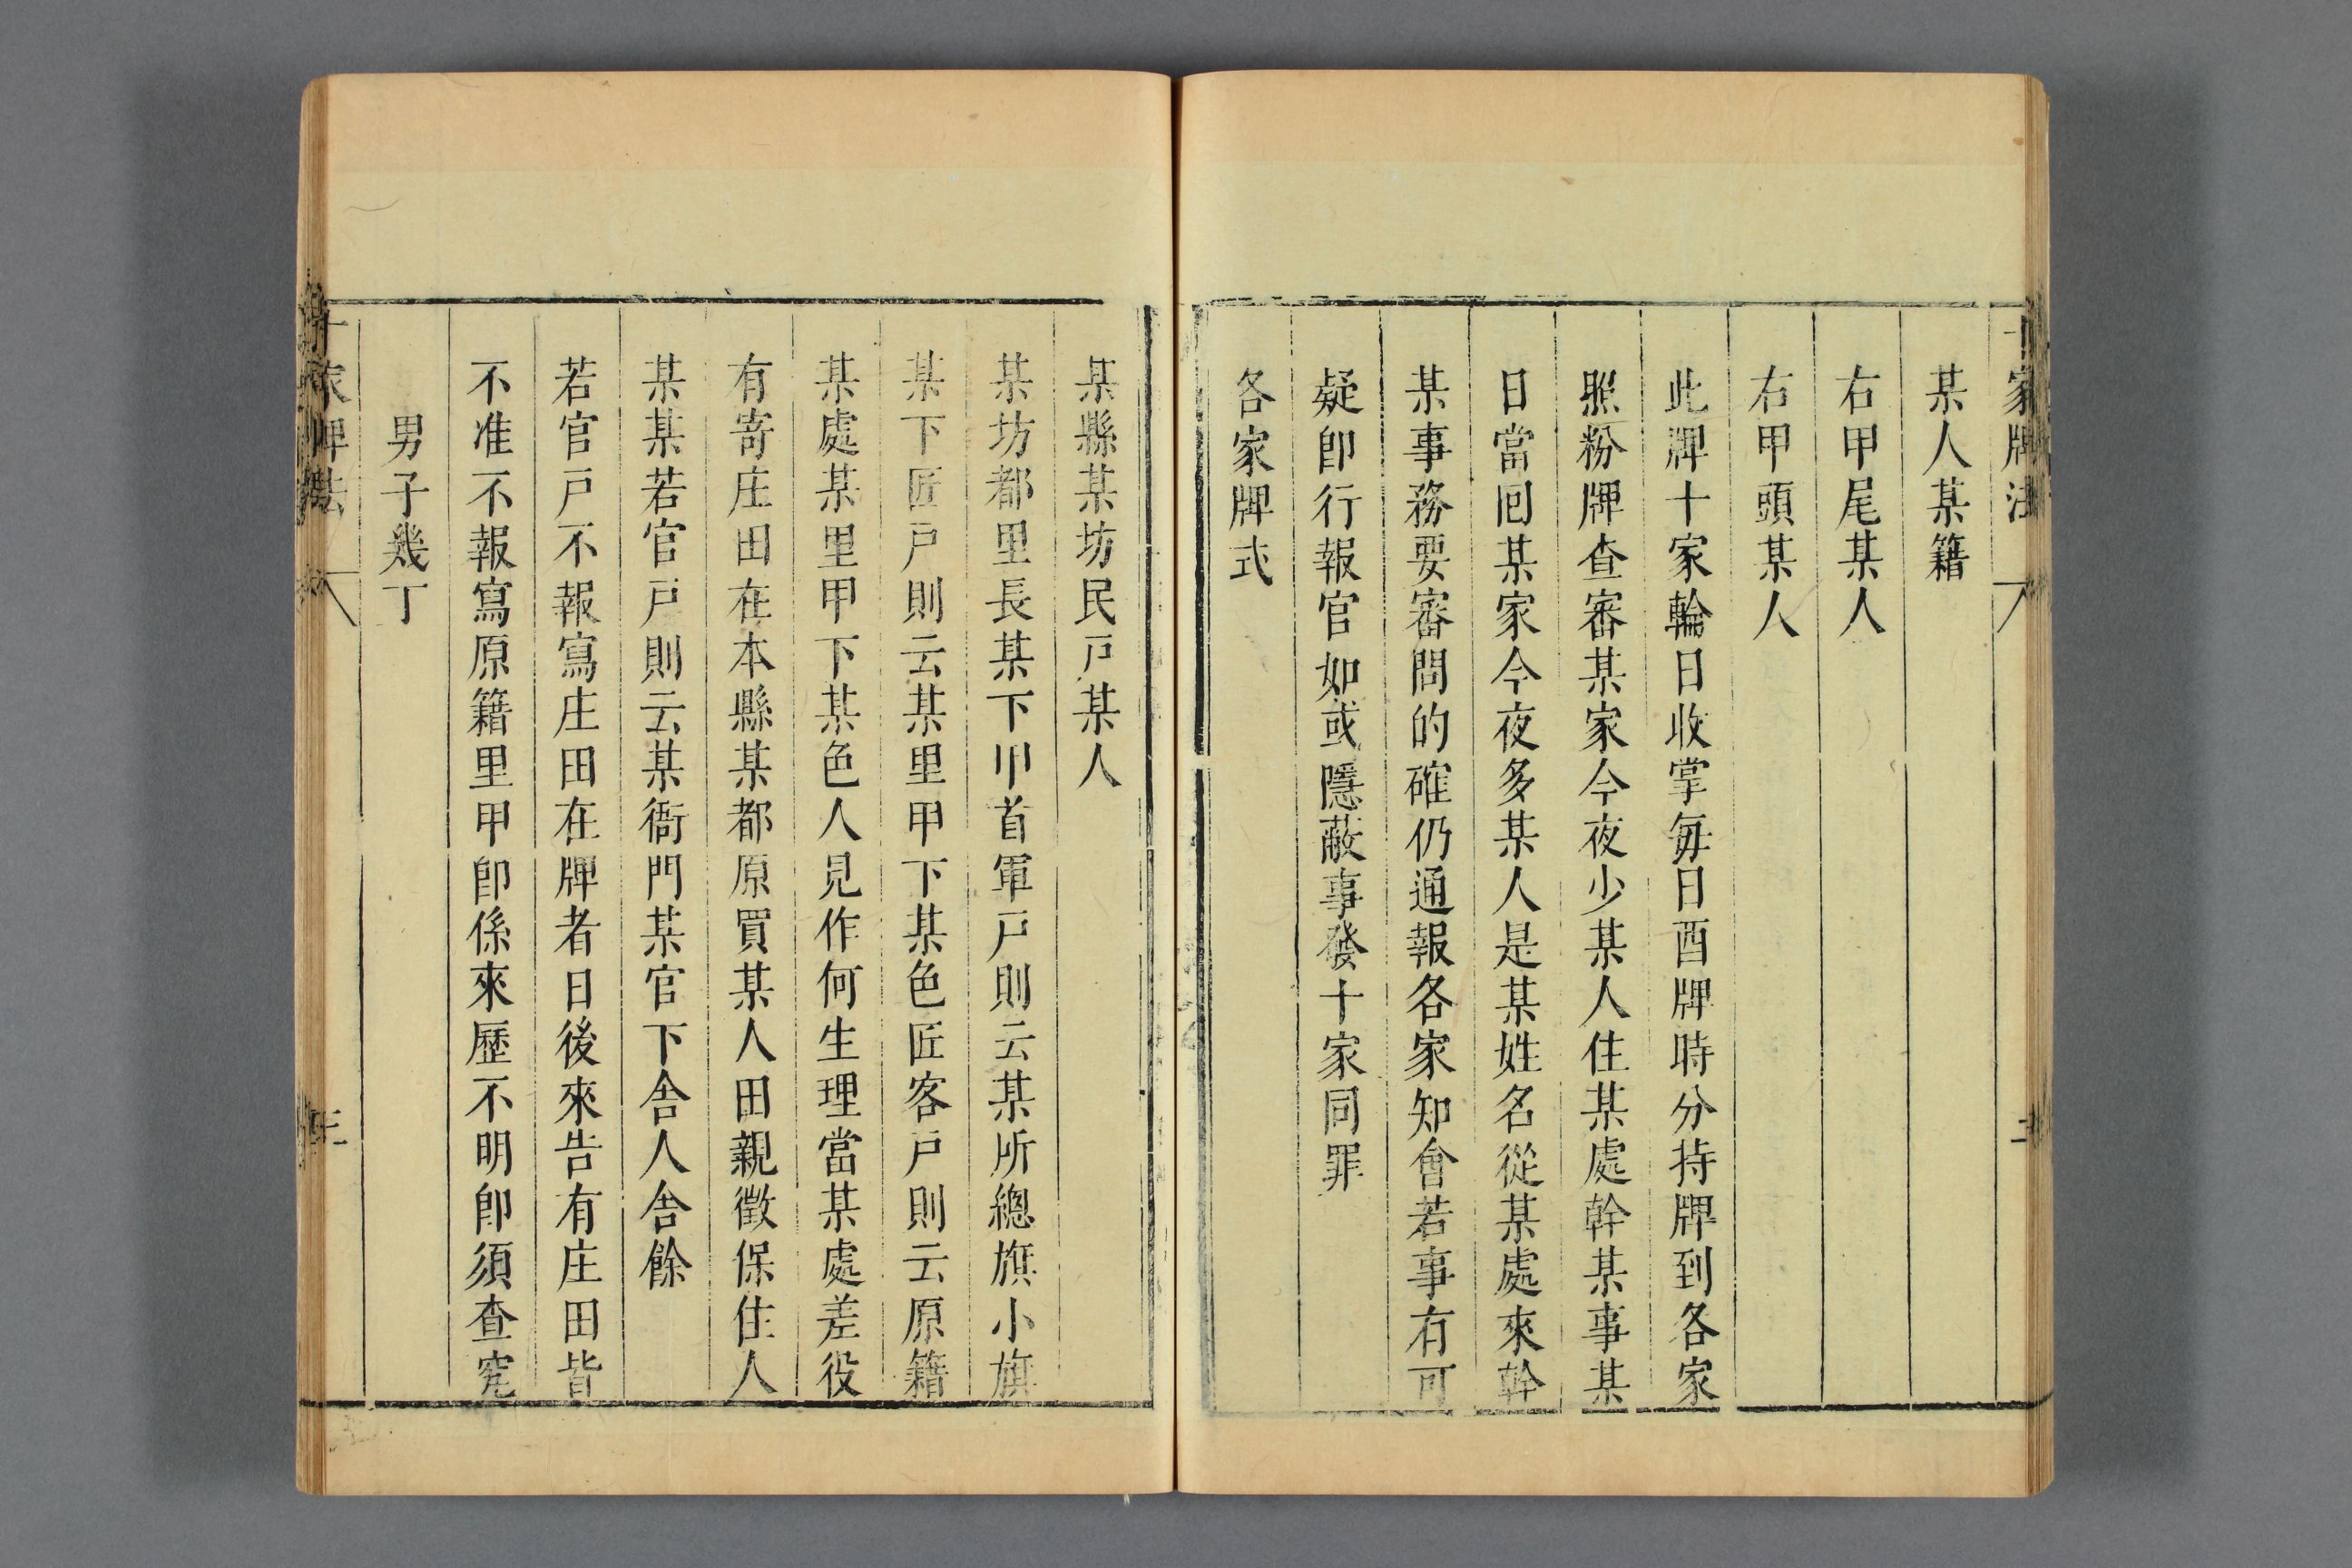 十家牌法
某人某籍
右甲尾某人
右甲頭某人
此牌十家輪日收掌每日酉牌時分持牌到各家
照粉牌查審某家今夜少某人住某處幹某事某
日當回某家今夜多某人是某姓名從某處來幹
某事務要審問的確仍通報各家知會若事有可
疑卽行報官如或隱蔽事發十家同罪
各家牌式
某縣某坊民戶某人
某坊都里長某下甲首軍戶則云某所總旗小旗
某下匠戶則云某里甲下某色匠客戶則云原籍
某處某里甲下某色人見作何生理當某處差役
有寄庄田在本縣某都原買某人田親徵保住人
某某若官戶則云某衙門某官下舍人舍餘
若官戶不報寫庄田在牌者日後來告有庄田皆
不准不報寫原籍里甲卽係來歷不明卽須查究
男子幾丁
十家牌法